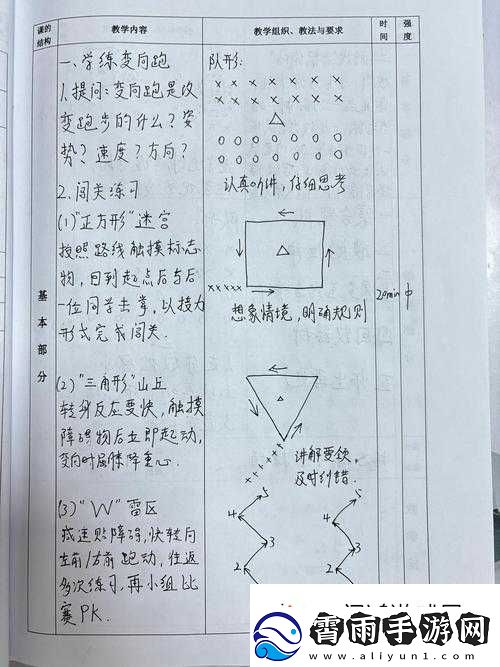 课的
结构
教学内容
教学组织、教法与要求
时
间
强
度
基
本
部
分
一、学练变向跑
1.提问:变向跑是改
变跑步的什么?姿
势?速度?方向?
2.闯关练习
(1)"正方形"迷宫
按照路线触摸标志
物,回到起点后与后
一位同学击掌,以接力
形式完成闯关.
(2)"三角形"山丘
转身反应要快,触摸
障碍物后立即起动,
变向时屈膝降重心.
(3)"W"雷区
减速贴障碍,快转向
左前/右前跑动,往返
多次练习,再小组比
赛PK.
队形:
× × × × × × ×
× × × × × × ×
○ ○ ○ ○ ○ ○ ○
○ ○ ○ ○ ○ ○ ○
认真听讲,仔细思考
×××××
想象情境,明确规则
××××××
讲解要领,
及时纠错.
5 5
4 4
3 3
2 2
20min
中
霄雨手游网
www.aliyun1.com